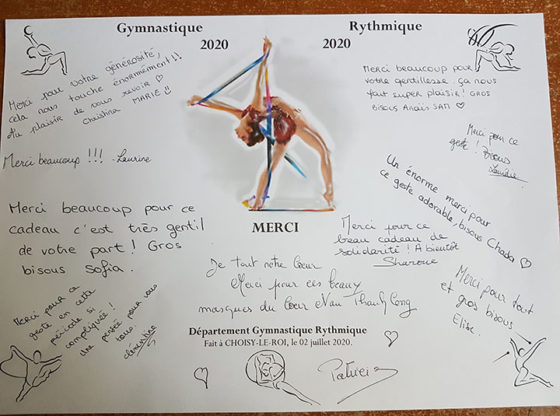 Gymnastique
Rythmique
2020
2020
Merci pour votre générosité,
cela nous touche énormément !!
Au plaisir de vous revoir ♡
Christina MARIE
Merci beaucoup pour
votre gentillesse ça nous
fait super plaisir ! GROS
Bisous Anaïs SAM ♡
Merci pour ce
geste ! Bisous
Merci beaucoup !!! -Laurine
Un énorme merci pour
ce geste adorable, bisous Chada ♡
Merci beaucoup pour ce
cadeau c'est très gentil
de votre part ! Gros
bisous Sofia.
MERCI
Merci pour ce
beau cadeau de
solidarité ! A bientôt
Merci pour tout
et gros bisous
Elise.
De tout notre Cœur
Merci pour ces beaux
masques du Cœur
Merci pour ce
geste en cette
période si
compliquée !
une pensée pour vous
tous
Département Gymnastique Rythmique
Fait à CHOISY-LE-ROI, le 02 juillet 2020.
Patricia